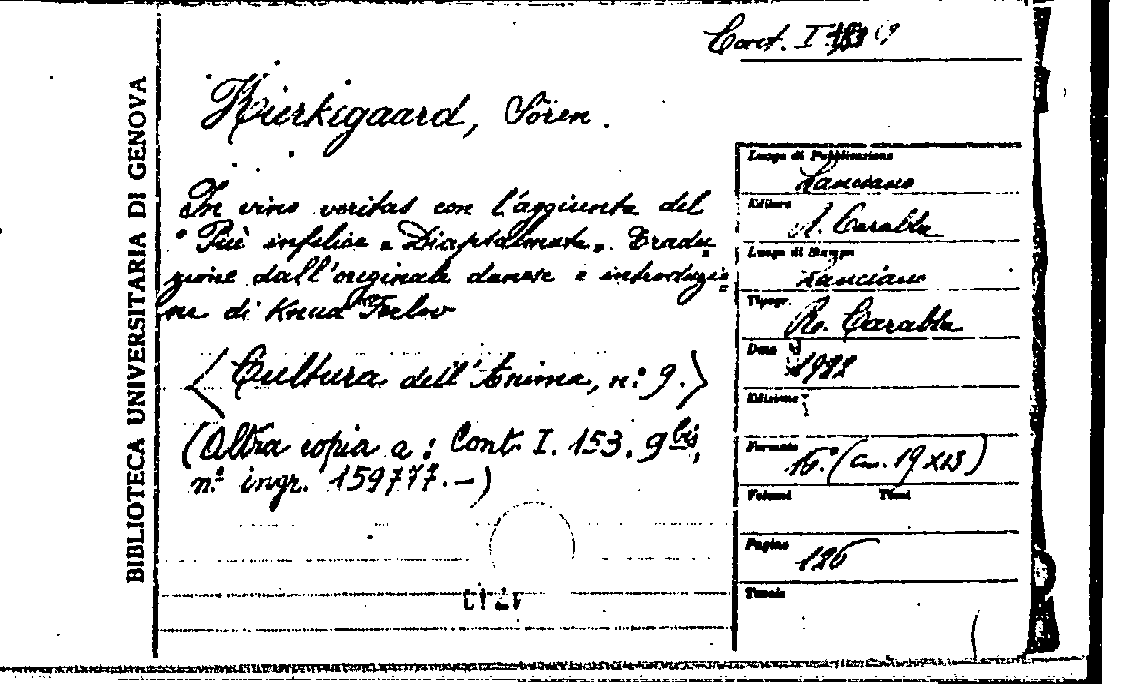 Cont. I
Kierkigaard, Sören.
In vino veritas con l'aggiunta del
"Più infelice e Diapsalmata". Tradu
zione dall'originale danese e introduzio
ne di Knud
<Cultura dell'Anima, n.° 9.>
(Altra copia a: Cont. I. 153. 9bis,
n.° ingr. 159777.-)
BIBLIOTECA UNIVERSITARIA DI GENOVA
Luogo di Pubblicazione
Lanciano
Editore
R. Carabba
Luogo di Stampa
Lanciano
Tipogr.
R. Carabba
Data
1922
Edizione
Formato
16.° (cm. 19x13)
Volumi Tomi
Pagine
126
Tavole